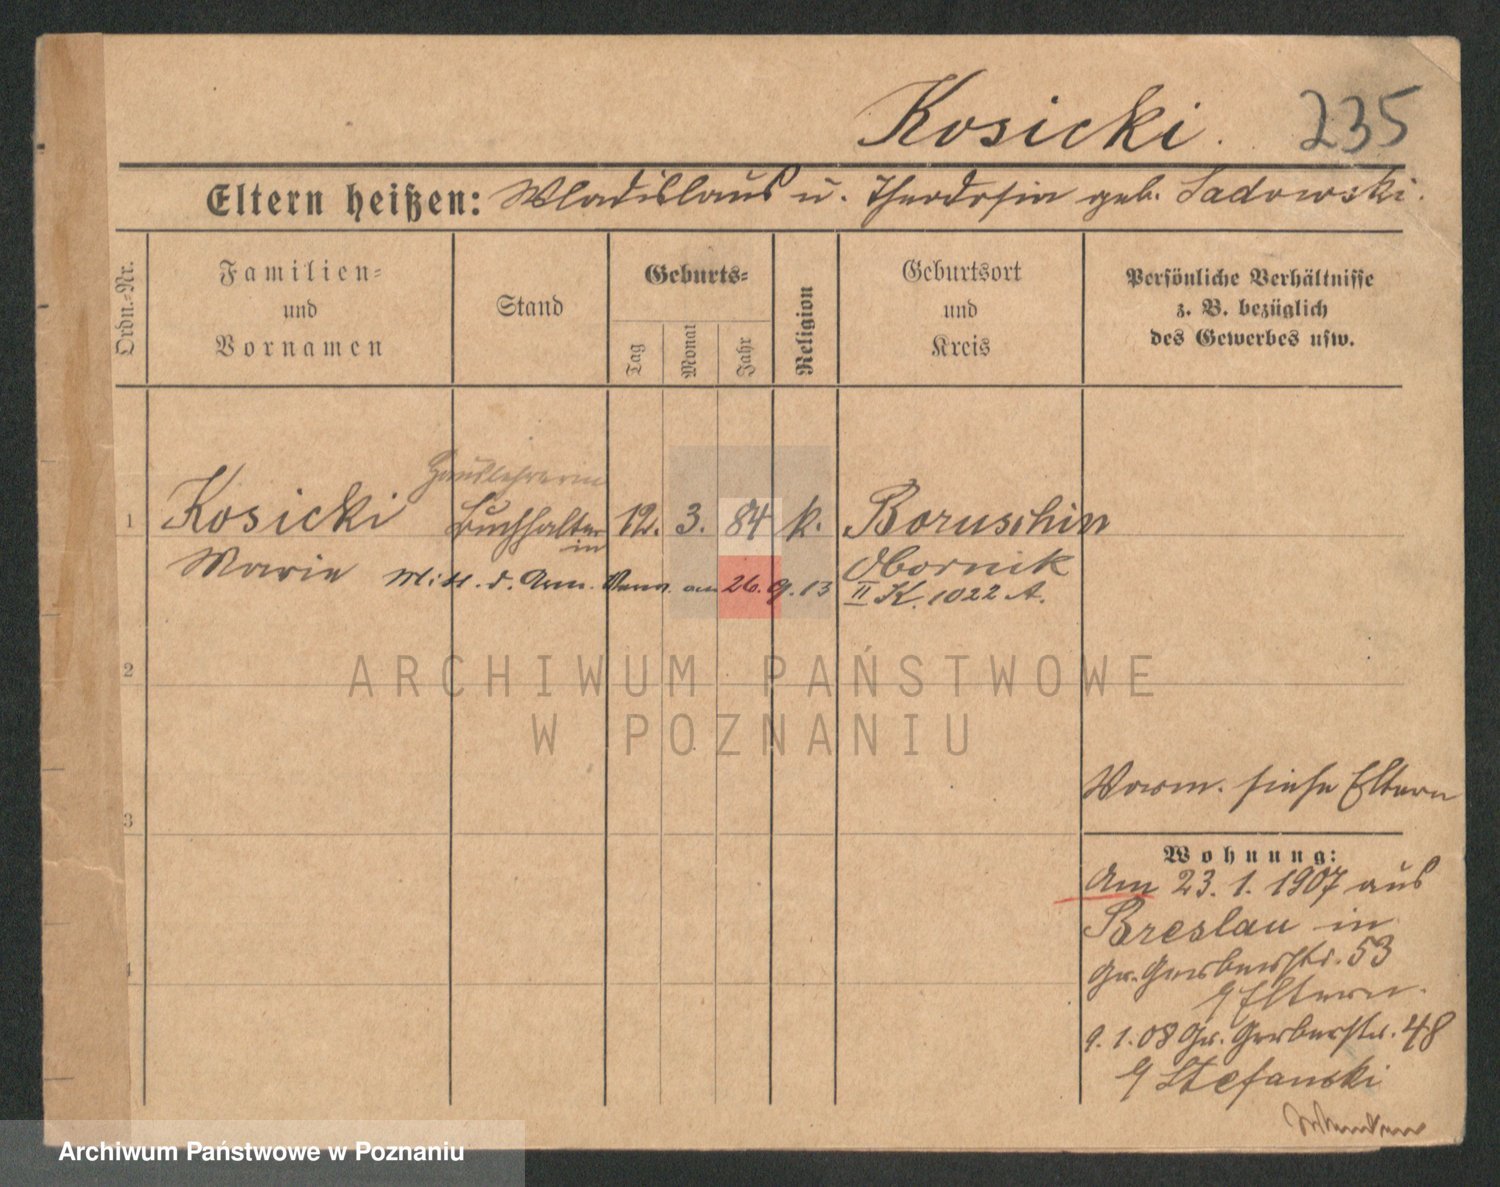 Kosicki. 235
Eltern heißen: Wladislaus u. Theodosia geb. Sadowski.
Ordn.-Nr.
Familien-
und
Vornamen
Stand
Geburts-
Tag
Monat
Jahr
Religion
Geburtsort
und
Kreis
Persönliche Verhältnisse
z. B. bezüglich
des Gewerbes usw.
Hauslehrerin
1 Kosicki Buchhalter 12. 3. 84 k. Boruschin
in
Marie Obornik
Mitt. d. am 26. 9. 13 II K. 1022 A.
2
ARCHIWUM PAŃSTWOWE
W POZNANIU
Vorm. siehe Eltern
3
Wohnung:
Am 23. 1. 1907 aus
Breslau in
Gr. Gerberstr. 53
Eltern.
9. 1. 08 Gr. Gerberstr. 48
Stefanski
4
Archiwum Państwowe w Poznaniu